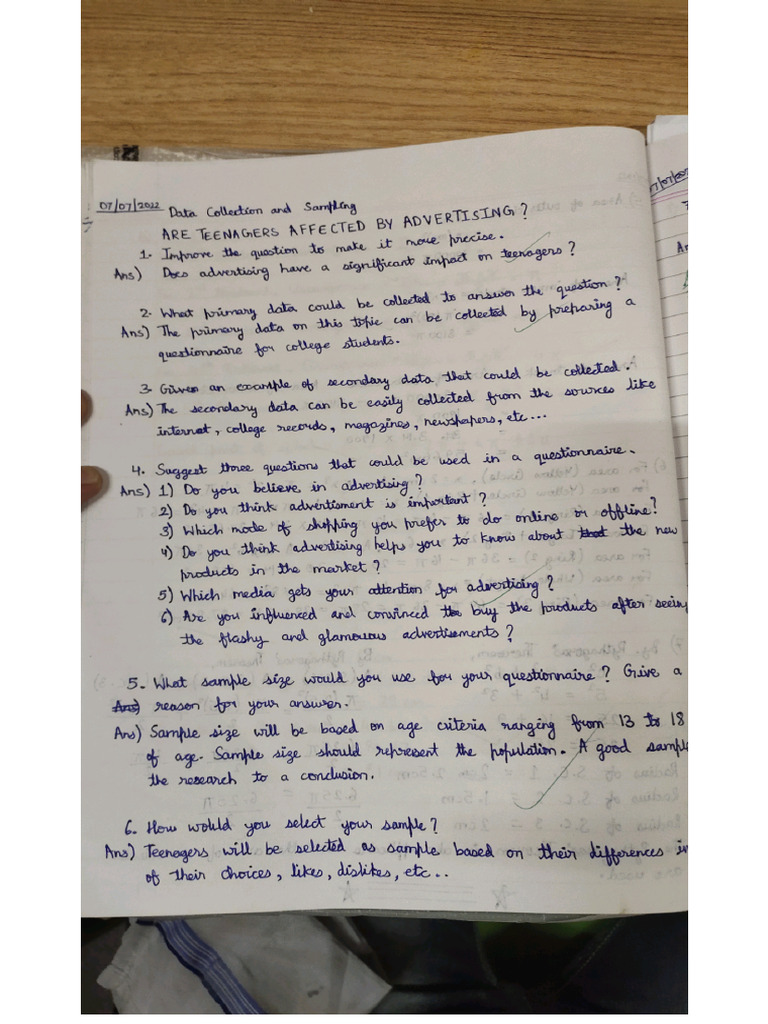 07/07/2022 Data Collection and Sampling
ARE TEENAGERS AFFECTED BY ADVERTISING?
1. Improve the question to make it more precise.
Ans) Does advertising have a significant impact on teenagers?
2. What primary data could be collected to answer the question?
Ans) The primary data on this topic can be collected by preparing a
questionnaire for college students.
3. Given an example of secondary data that could be collected.
Ans) The secondary data can be easily collected from the sources like
internet, college records, magazines, newspapers, etc...
4. Suggest three questions that could be used in a questionnaire.
Ans) 1) Do you believe in advertising?
2) Do you think advertisment is important?
3) Which mode of shopping you prefer to do online or offline?
4) Do you think advertising helps you to know about that the new
products in the market?
5) Which media gets your attention for advertising?
6) Are you influenced and convinced to buy the products after seeing
the flashy and glamouous advertisements?
5. What sample size would you use for your questionnaire? Give a
Ans) reason for your answer.
Ans) Sample size will be based on age criteria ranging from 13 to 18
of age. Sample size should represent the population. A good sampl
the research to a conclusion.
6. How would you select your sample?
Ans) Teenagers will be selected as sample based on their differences in
of their choices, likes, dislikes, etc...